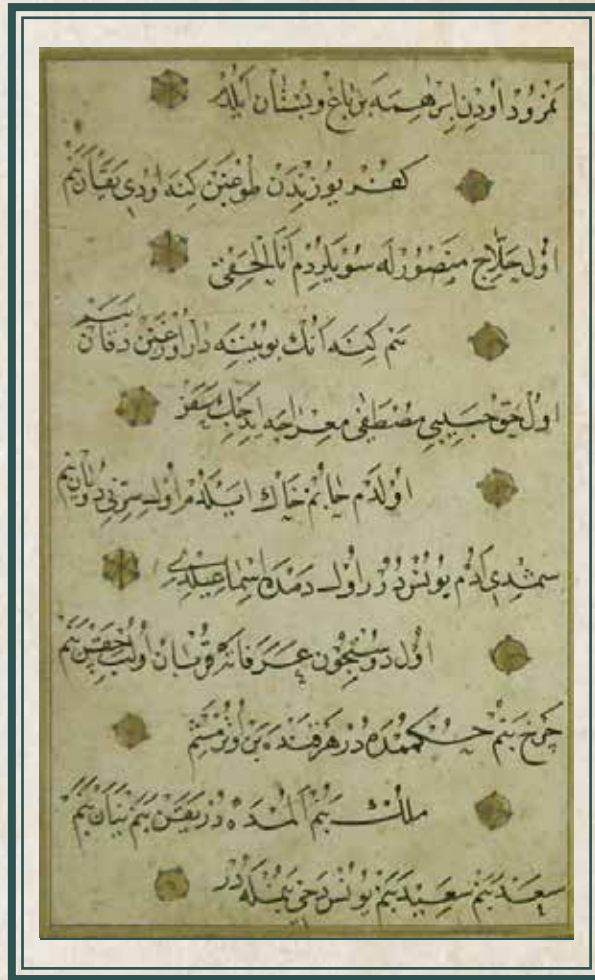 نمرود اودن ابراهيمه بن باغ و بستان ايلدم
كفر يوزندن طوغبن كنه اودى يقان بنم
اول حلاج منصورله سويلردم انا الحقى
بنم كنه انك بوينه دار اورغنن دقان بنم
اول حق حبيبى مصطفى معراجه ايدجك سفر
اولدم جانم خاك ايلدم اول سرنى دويان بنم
شمدى ادم يونسدر اول دمده اسماعيلدى
اول دوستيجون عرفاته قربان اولب چقن بنم
چرخ بنم حكممده در هر قنده بن اوترمشم
ملك بنم المده در يقن بنم ياپان بنم
سعد بنم سعيد بنم يونس دخى بنمله در